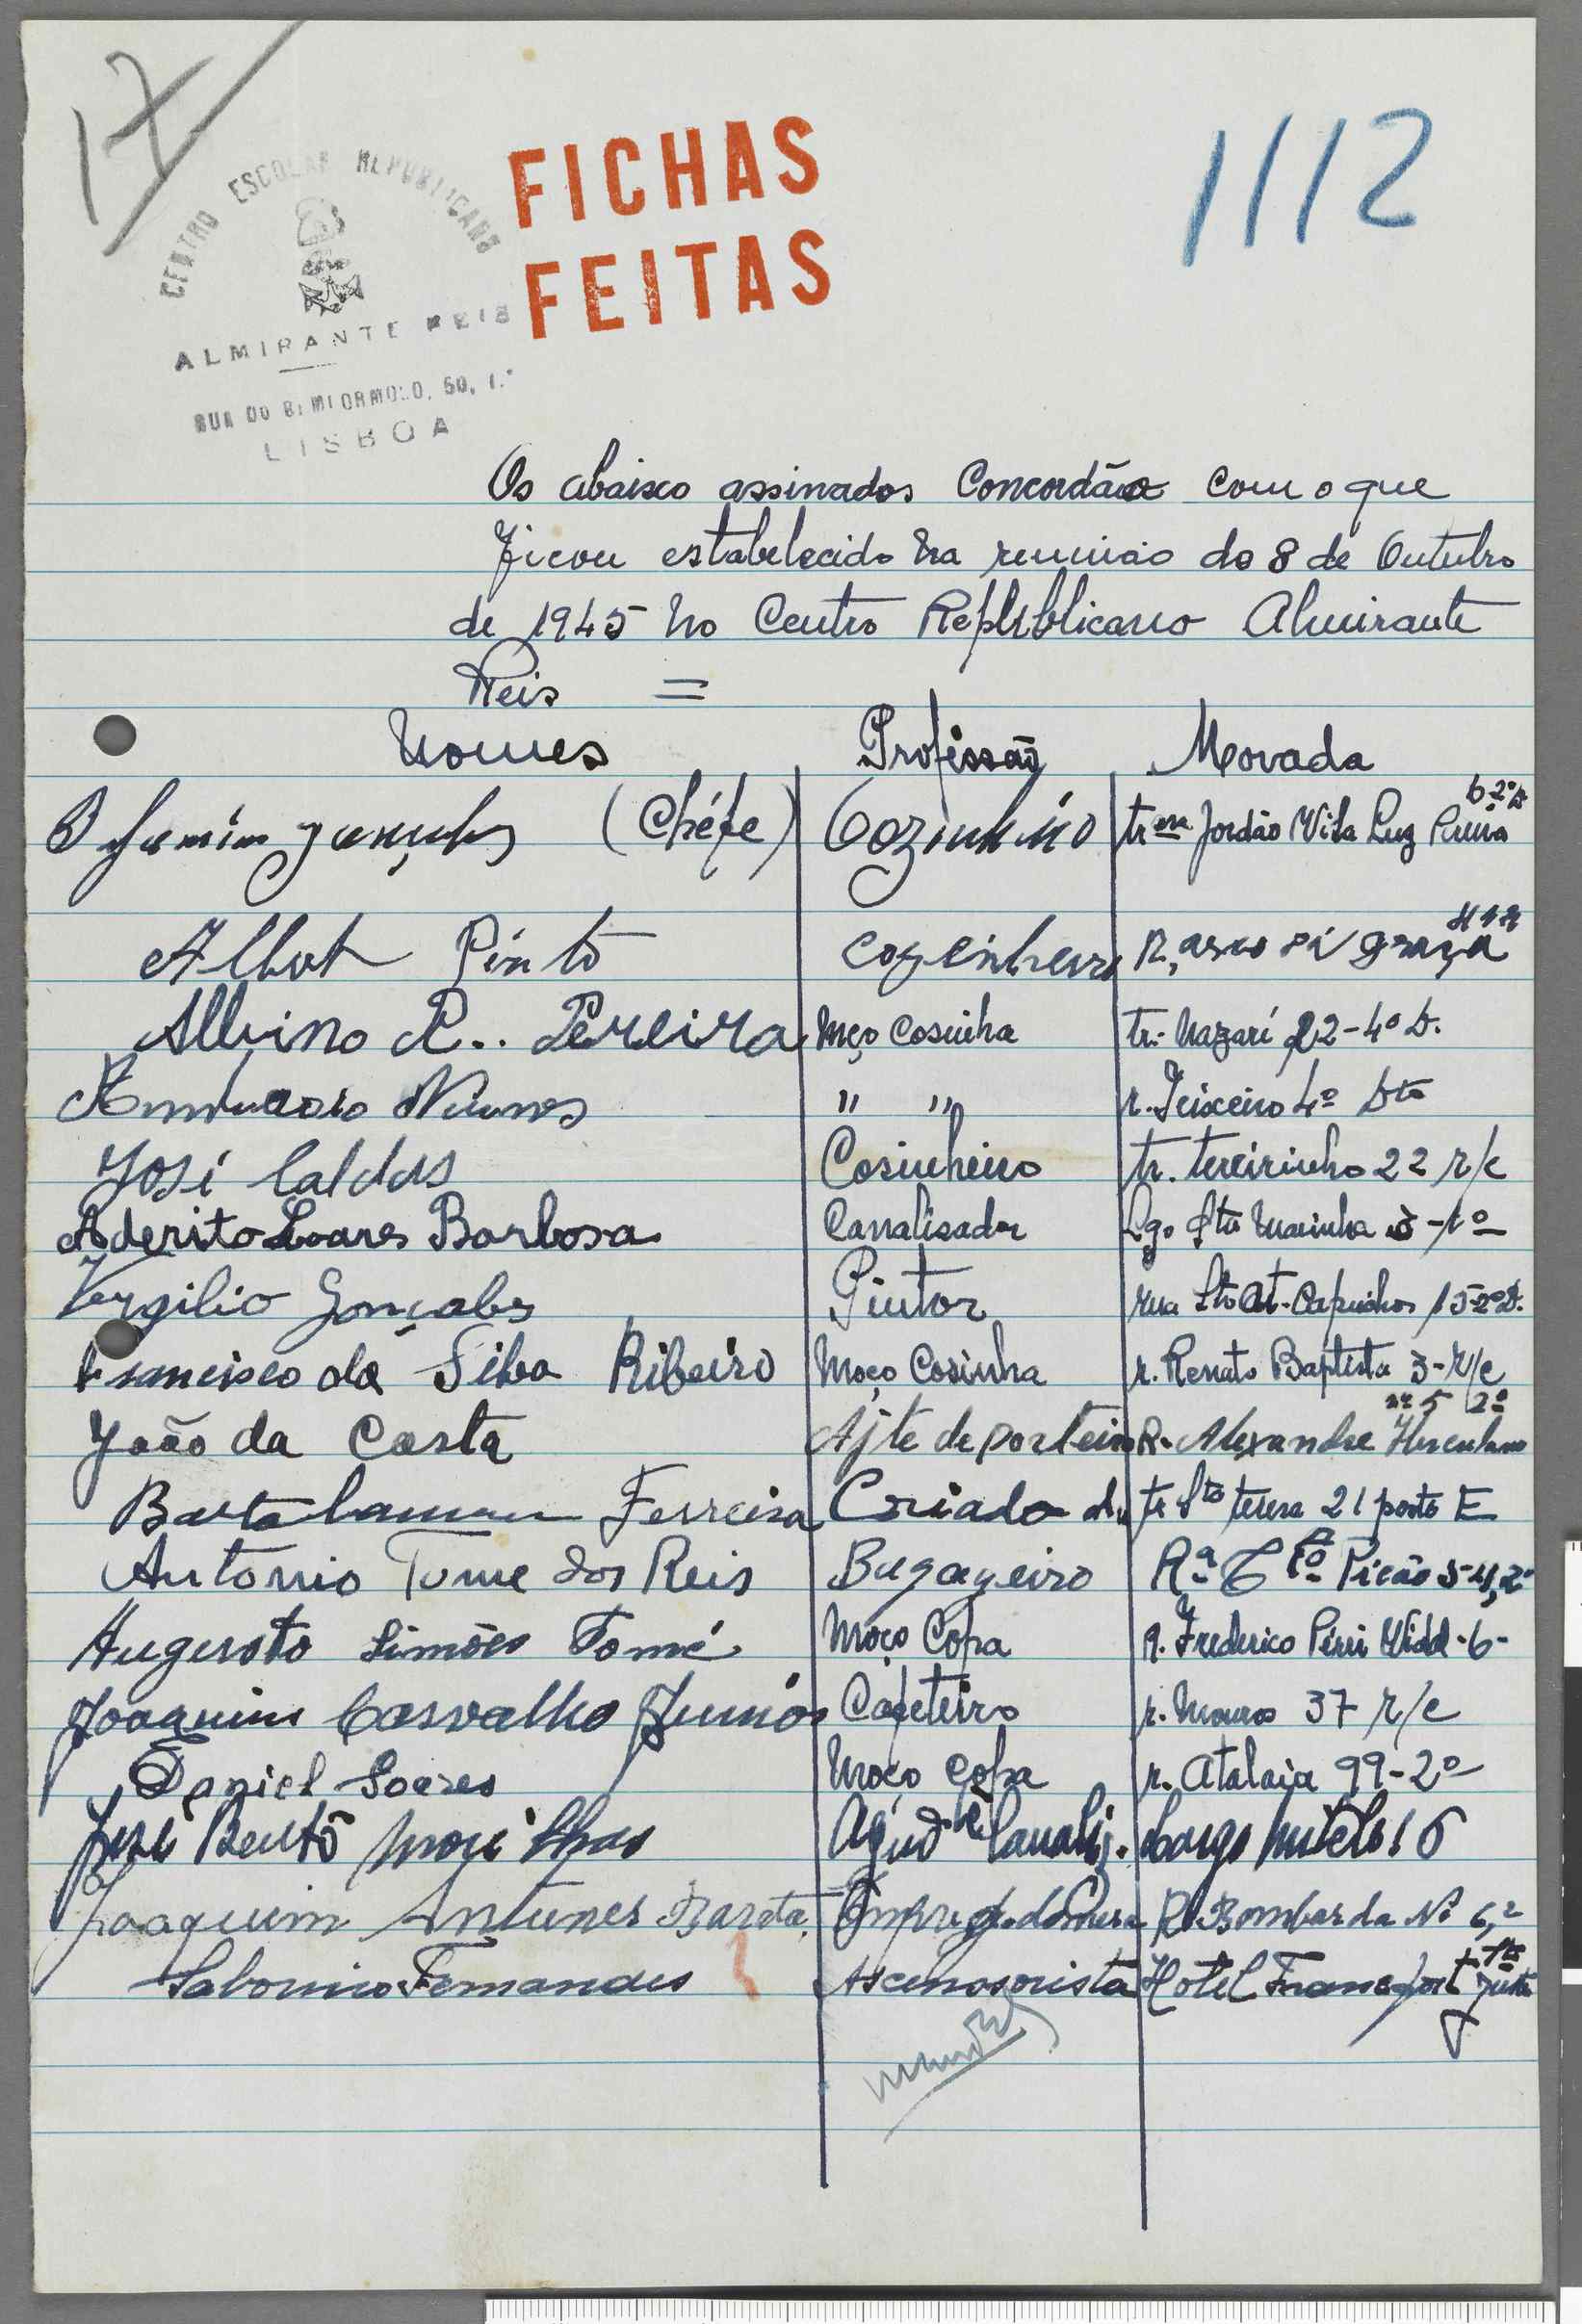 17
1112
CENTRO ESCOLAR REPUBLICANO
ALMIRANTE REIS
RUA DO BEMFORMOSO, 50, 1.º
LISBOA
FICHAS
FEITAS
Os abaixo assinados Concordão com o que
ficou estabelecido na reunião do 8 de Outubro
de 1945 no Centro Republicano Almirante
Reis =
Nomes Profissão Morada
(Chéfe) Cozinheiro Jordão Vila Luz 6-2º D
Albert Pinto cozinheiro R,
Albino R.. Pereira Mço Cosinha tr. Nazaré 22-4º D.
Nunes " " r. Teixeira 4º Dto
José Caldas Cosinheiro tr. terreirinho 22 r/c
Aderito Soares Barbosa Canalisador Lgo Sta Marinha 3-1º
Vergilio Gonçalves Pintor rua Sto At. Capuchos 15-2º D.
Francisco da Silva Ribeiro Moço Cosinha r. Renato Baptista 3-R/c
João da Costa Ajte de porteiro R. Alexandre Herculano nº 5 2º
Ferreira Criado tr Sta teresa 21 porta E
Antonio Tome dos Reis Bagageiro Rª Picão
Augusto Simões Tomé Moço Copa r. Frederico 6-
Joaquim Carvalho Junior Cafeteiro r. Mouros 37 r/c
Daniel Soares Moço Copa r. Atalaia 99-2º
José Bento Ajud. Canaliz. Largo Mitelo 16
Joaquim Antunes Barata R. Bombarda Nº 6,2
Saborino Fernandes Ascensorista Hotel Francfort